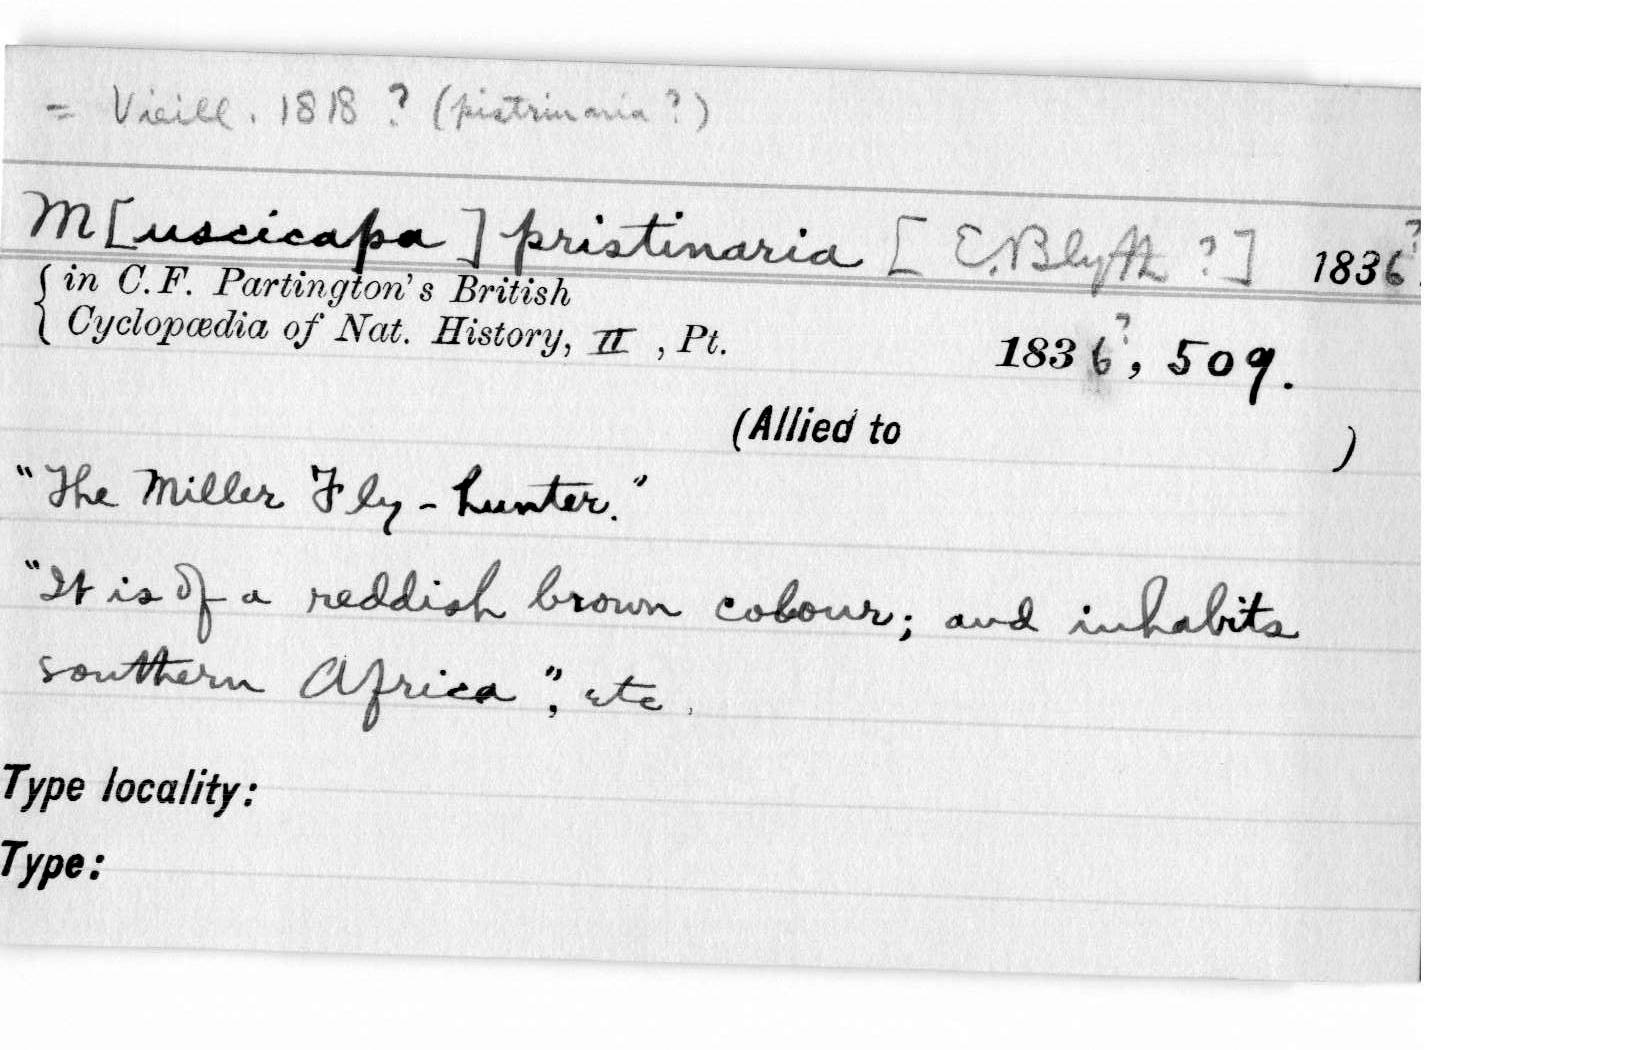 = Vieill. 1818 ? (pistrinaria ?)
M[uscicapa] pristinaria [E. Blyth ?] 1836?.
{ in C.F. Partington's British
Cyclopædia of Nat. History, II, Pt. 1836?, 509.
(Allied to )
"The Miller Fly-hunter."
"It is of a reddish brown colour; and inhabits
southern Africa", etc.
Type locality:
Type: